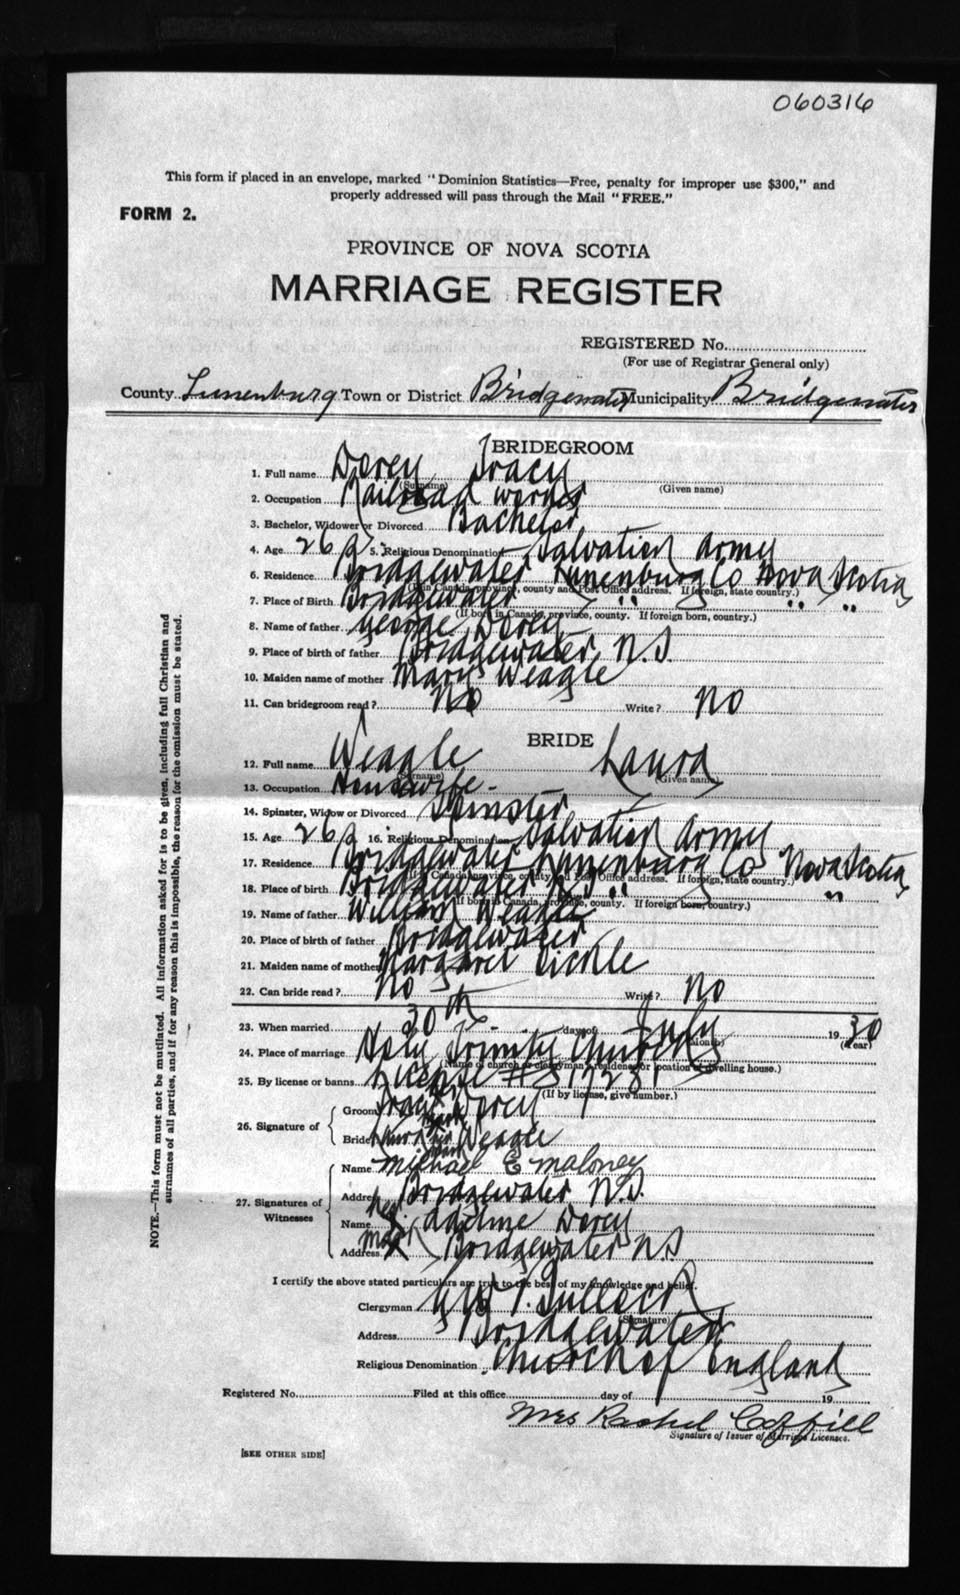 060316
This form if placed in an envelope, marked "Dominion Statistics—Free, penalty for improper use $300," and
properly addressed will pass through the Mail "FREE."
FORM 2.
PROVINCE OF NOVA SCOTIA
MARRIAGE REGISTER
REGISTERED No.
(For use of Registrar General only)
County Lunenburg Town or District Bridgewater Municipality Bridgewater
BRIDEGROOM
1. Full name Dorey Tracy
(Surname) (Given name)
2. Occupation Railroad worker
3. Bachelor, Widower or Divorced Bachelor
4. Age 26 5. Religious Denomination Salvation Army
6. Residence Bridgewater Lunenburg Co Nova Scotia
(If in Canada, province, county and Post Office address. If foreign, state country.)
7. Place of Birth Bridgewater " " "
(If born in Canada, province, county. If foreign born, country.)
8. Name of father George Dorey
9. Place of birth of father Bridgewater N.S.
10. Maiden name of mother Mary Weagle
11. Can bridegroom read? No Write? No
BRIDE
12. Full name Weagle Laura
(Surname) (Given name)
13. Occupation Housewife
14. Spinster, Widow or Divorced Spinster
15. Age 26 16. Religious Denomination Salvation Army
17. Residence Bridgewater Lunenburg Co Nova Scotia
(If in Canada, province, county, and Post Office address. If foreign, state country.)
18. Place of birth Bridgewater N.S. " "
(If born in Canada, province, county. If foreign born, country.)
19. Name of father William Weagle
20. Place of birth of father Bridgewater
21. Maiden name of mother Margaret
22. Can bride read? No Write? No
23. When married 30th day of July 1930
(Month) (Year)
24. Place of marriage Holy Trinity Church
(Name of church or clergyman's residence or location of dwelling house.)
25. By license or banns License #
(If by license, give number.)
26. Signature of
Groom Tracy Dorey
Bride Laura Weagle
27. Signatures of Witnesses
Name Michael E Maloney
Address Bridgewater N.S.
Name Adeline Dorey
Address Bridgewater N.S
her X mark
I certify the above stated particulars are true to the best of my knowledge and belief.
Clergyman
(Signature)
Address Bridgewater
Religious Denomination Church of England
Registered No. Filed at this office day of 19
Mrs Rachel Coffill
Signature of Issuer of Marriage Licenses.
[SEE OTHER SIDE]
NOTE.—This form must not be mutilated. All information asked for is to be given, including full Christian and
surnames of all parties, and if for any reason this is impossible, the reason for the omission must be stated.